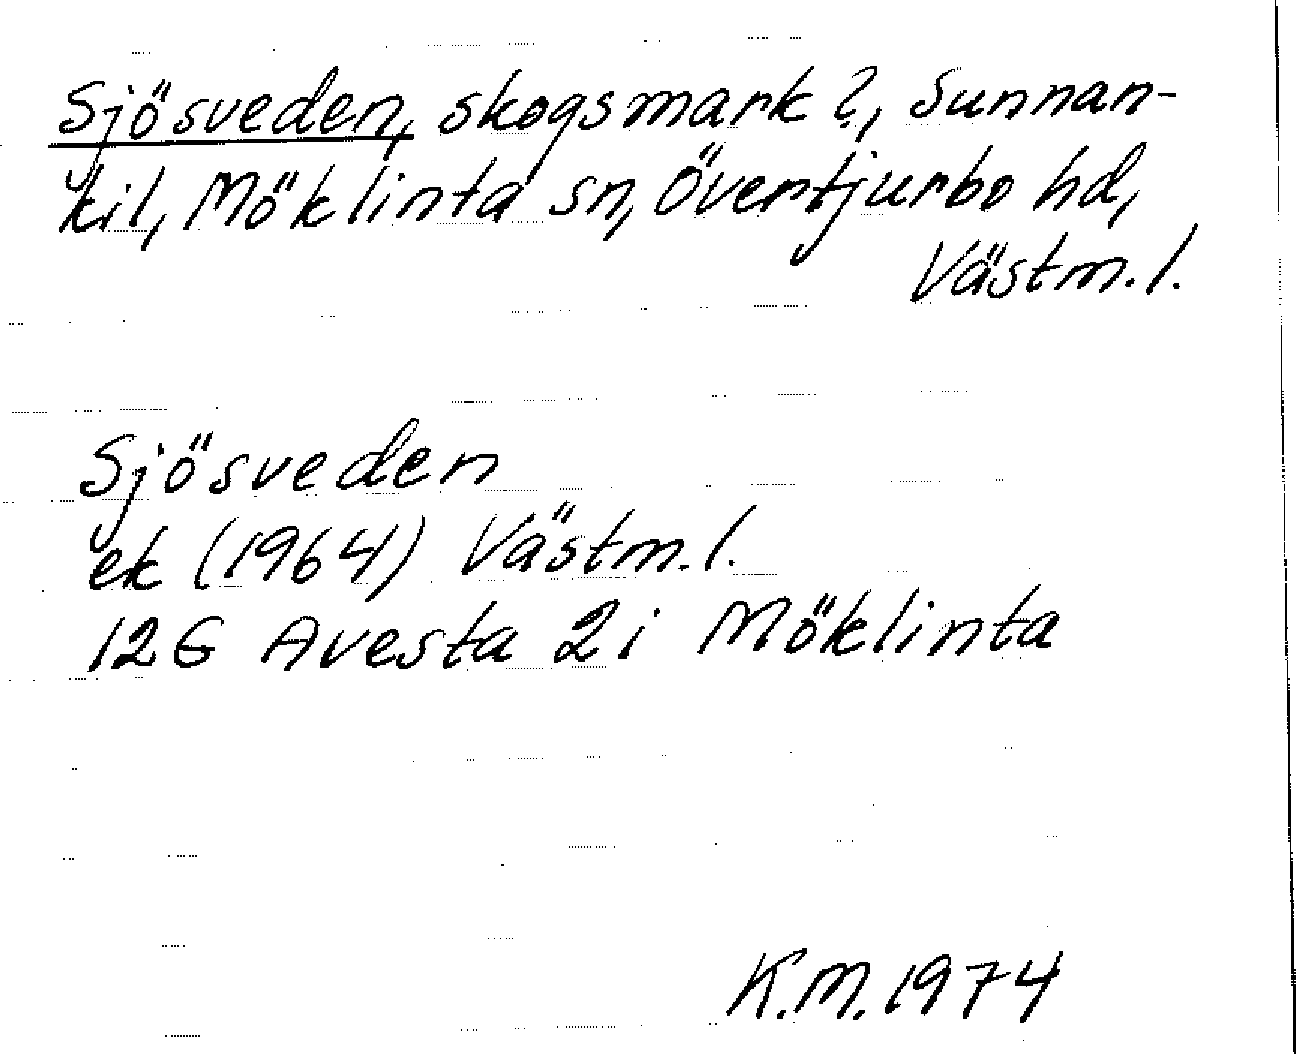 Sjösveden, skogsmark?, Sunnan-
kil, Möklinta sn, Övertjurbo hd,
Västm.l.
Sjösveden
ek (1964) Västm.l.
12G Avesta 2i Möklinta
K.M. 1974